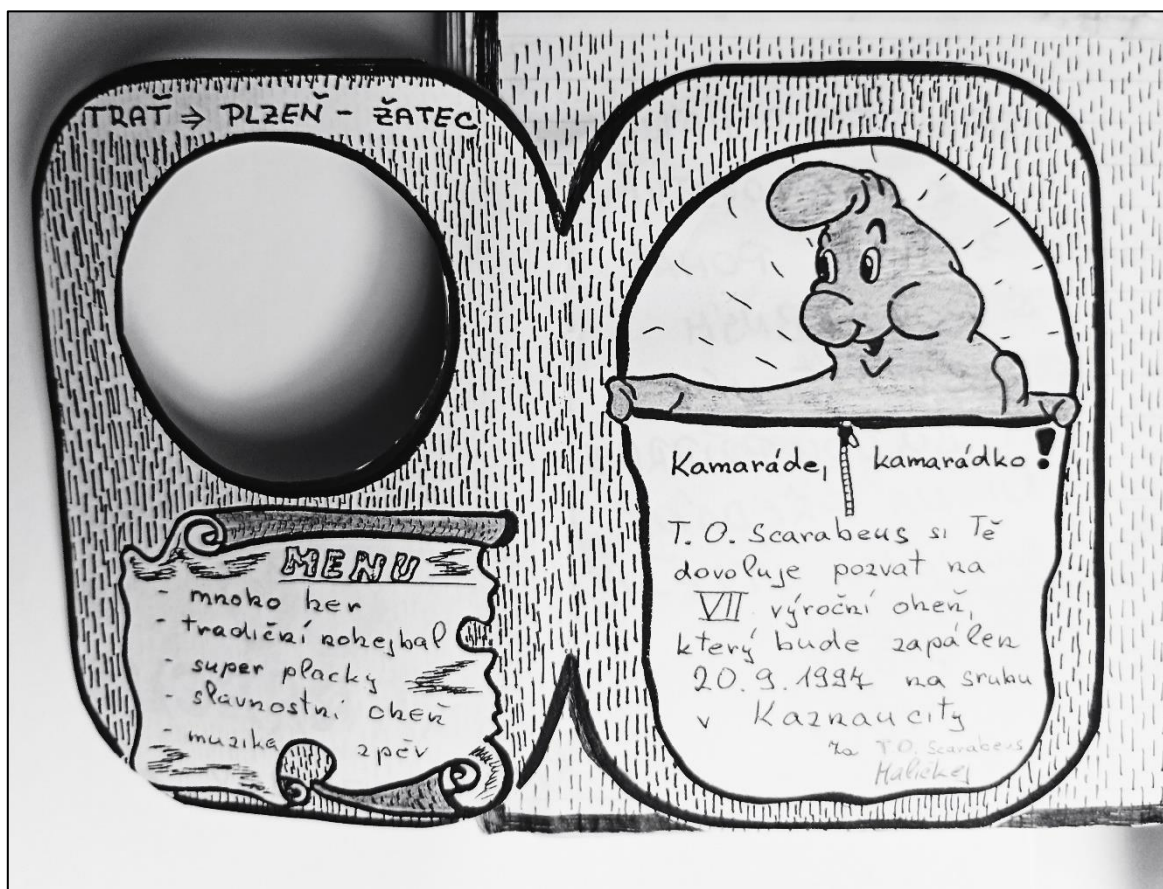 TRAŤ ⇒ PLZEŇ - ŽATEC
MENU
- mnoho her
- tradiční nohejbal
- super placky
- slavnostní oheň
- muzika zpěv
Kamaráde, kamarádko!
T. O. Scarabeus si Tě
dovoluje pozvat na
VII výroční oheň,
který bude zapálen
20. 9. 1994 na srubu
v Kaznau city
za T.O. Scarabeus